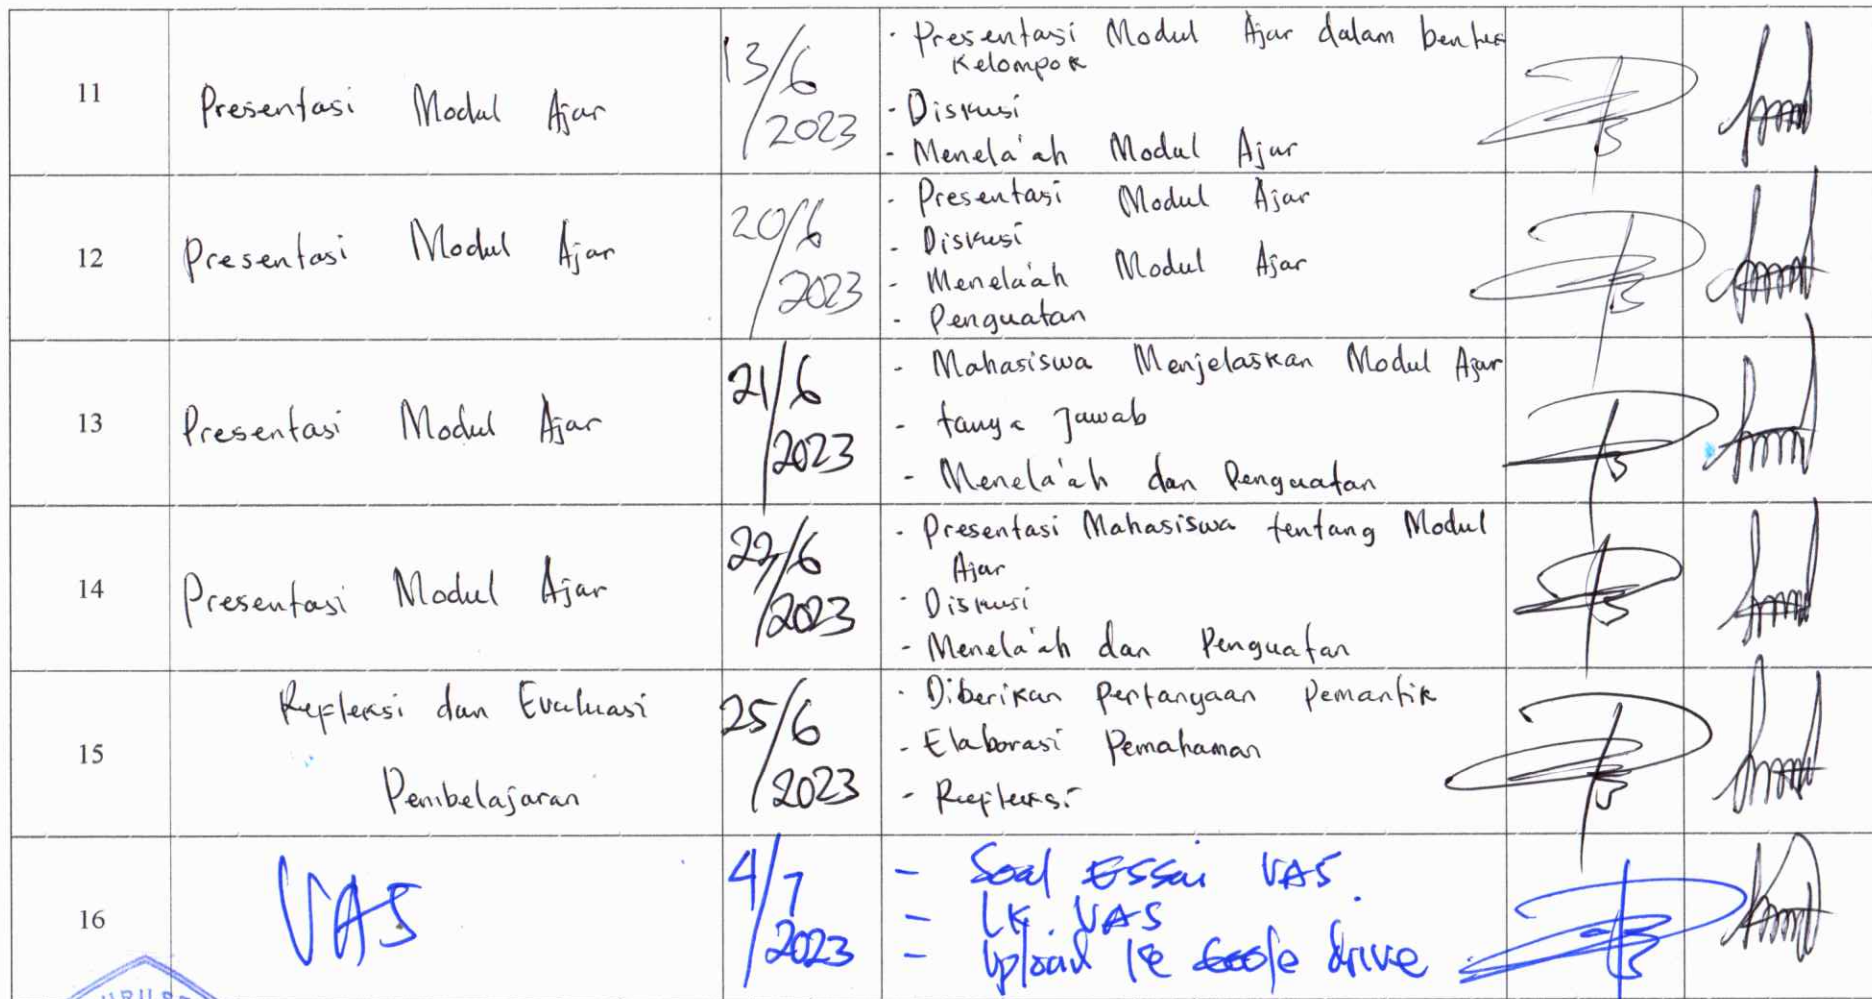 11
Presentasi Modul Ajar
13/6
2023
- Presentasi Modul Ajar dalam bentuk
Kelompok
- Diskusi
- Menela'ah Modul Ajar
12
Presentasi Modul Ajar
20/6
2023
- Presentasi Modul Ajar
- Diskusi
- Menela'ah Modul Ajar
- Penguatan
13
Presentasi Modul Ajar
21/6
2023
- Mahasiswa Menjelaskan Modul Ajar
- tanya Jawab
- Menela'ah dan Penguatan
14
Presentasi Modul Ajar
22/6
2023
- Presentasi Mahasiswa tentang Modul
Ajar
- Diskusi
- Menela'ah dan Penguatan
15
Refleksi dan Evaluasi
Pembelajaran
25/6
2023
- Diberikan Pertanyaan Pemantik
- Elaborasi Pemahaman
- Refleksi
16
UAS
4/7
2023
- Soal Essai UAS
- LK UAS
- Upload ke Google drive